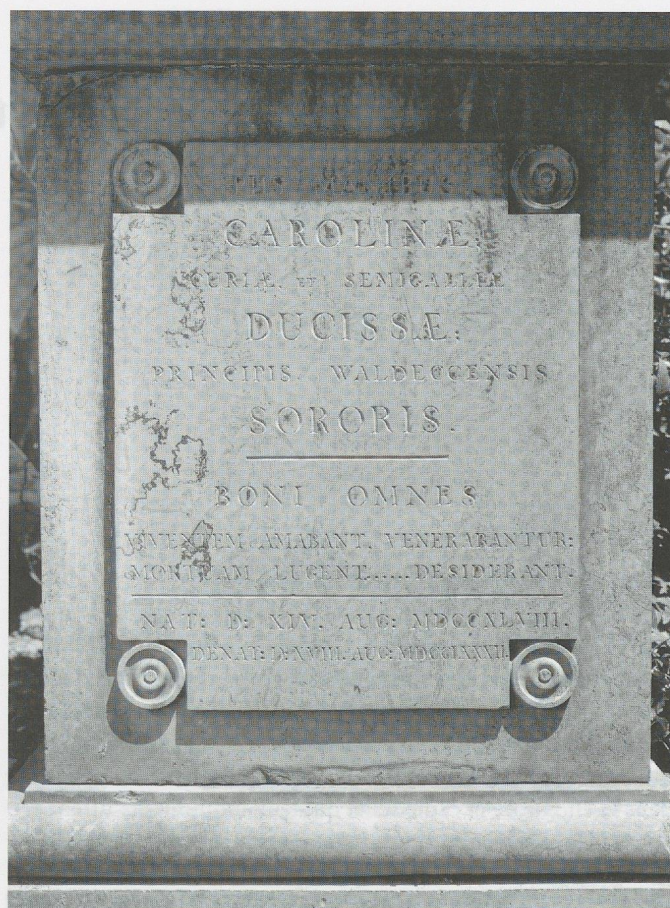 CAROLINÆ.
CURIÆ. ET SEMIGALLIÆ
DUCISSÆ:
PRINCIPIS. WALDECCENSIS
SORORIS.
BONI OMNES
VIVENTEM AMABANT. VENERABANTUR:
MORTUAM LUGENT.....DESIDERANT.
NAT: D: XIV. AUG: MDCCXLVIII.
DENAT: D: XVIII. AUG: MDCCLXXXII.